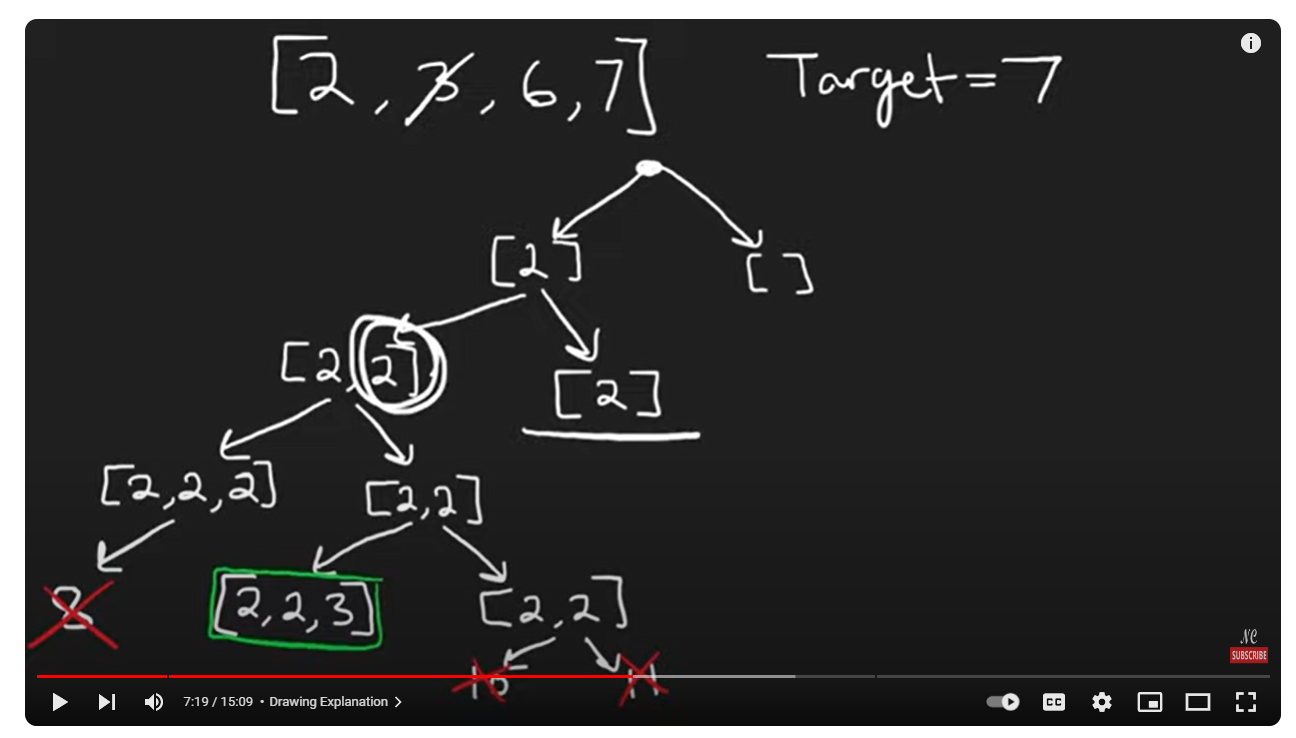 [2, 3, 6, 7] Target=7
[2] []
[2,2] [2]
[2,2,2] [2,2]
8 [2,2,3] [2,2]
10 11
NC
SUBSCRIBE
7:19 / 15:09 • Drawing Explanation >
CC